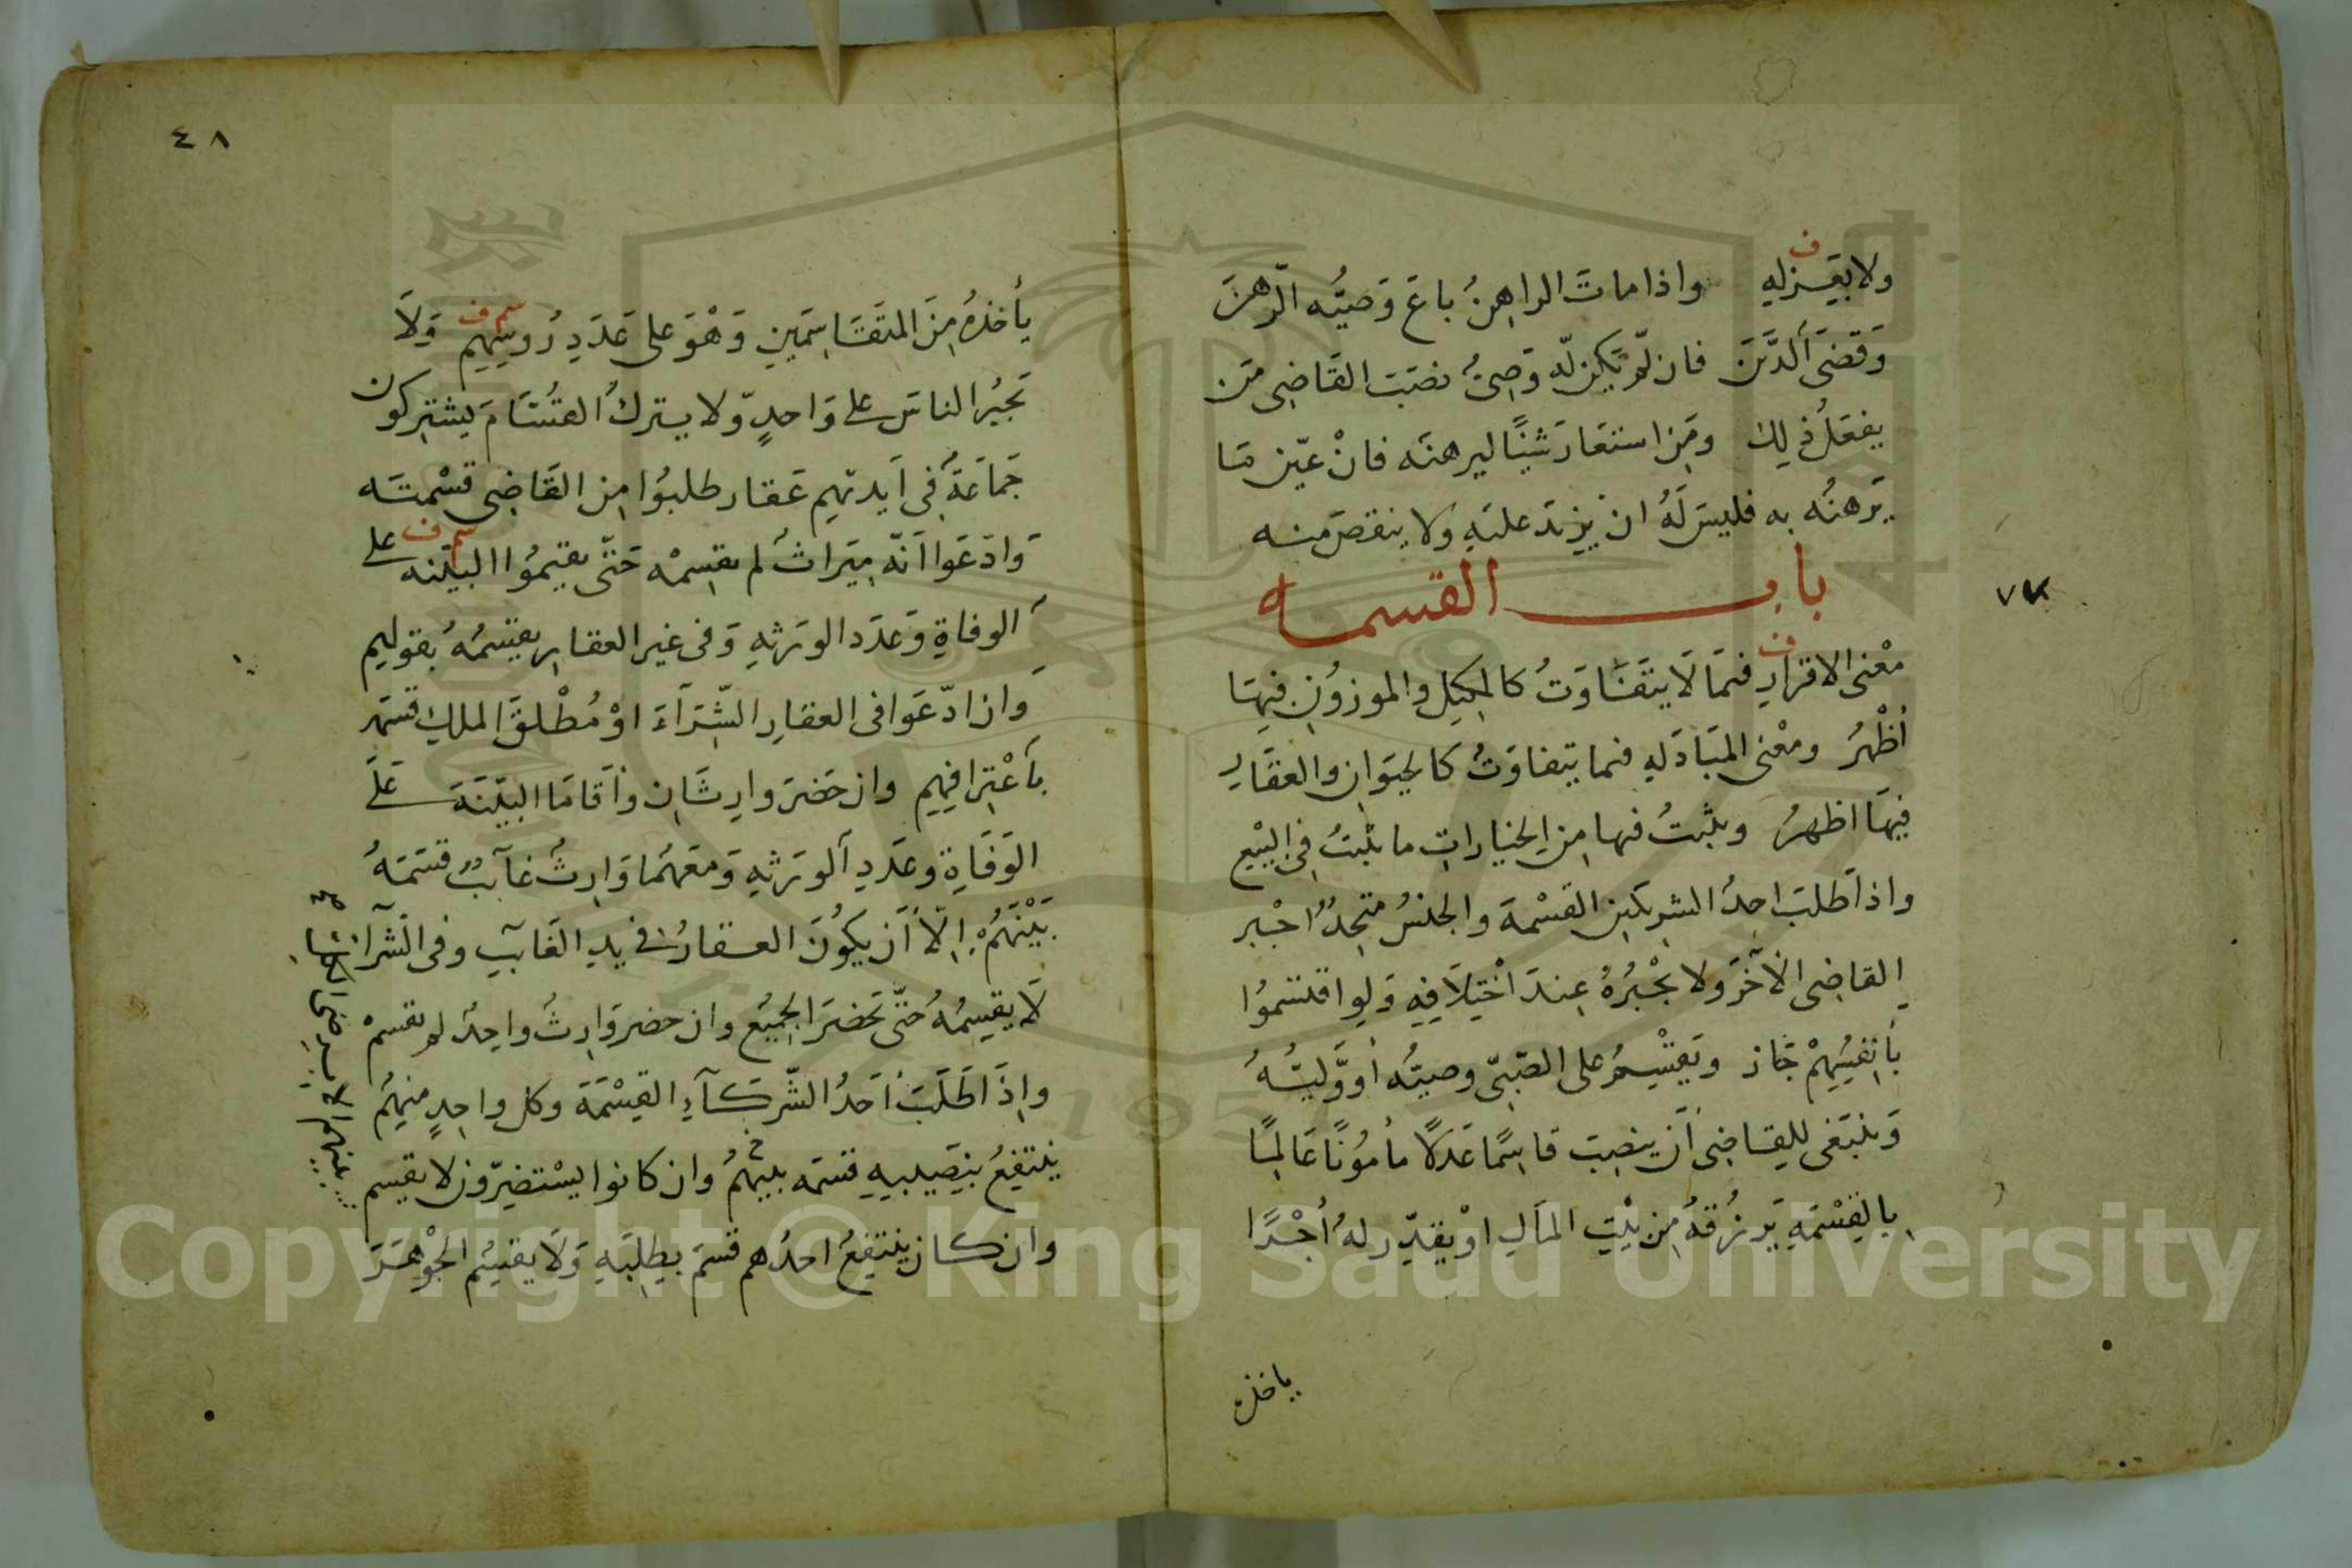 ولا بعزله واذا مات الراهنُ باعَ وَصيُّه الرّهنَ
وَقضَى الدَّينَ فان لّم يكن لّه وَصِىٌّ نصَبَ القَاضِى مَن
يفعَلُ ذٰلِك ومَن استعَارَ شيئًا ليرهنَه فانْ عيّن مَا
يَرهنُه به فليسَ لَهُ ان يزيدَ علَيهِ وَلا ينقصَ منه
باب القسمه
معْنى الافرازِ فيمَا لَا يتَفَاوَتُ كالمكيلِ والموزوُنِ فيهَا
أظْهرُ ومعْنى المبَادَلهِ فيما يتفاوَتُ كالحيَوانِ والعقَارِ
فيهَا اظهرُ ويثبتُ فيها مِن الخيَاراتِ ما يثْبتُ فِى البيْع
واذا طَلبَ احدُ الشرِيكَينِ القسْمةَ والجنسُ متّحِدٌ اجْبر
القاضِى الاٰخَرَ ولا يجْبُرهُ عِندَ اخْتِلَافِهِ وَلو اقتسَموُا
بأنفُسِهِمْ جَازَ ويَقْسِمُ على الصّبىّ وصيّه أو وَّليُّهُ
وَينبَغى للقَاضِى أن ينصِبَ قاسِمًا عَدلًا مأموُنًا عَالمًا
بالقِسْمَةِ يَرزُقهُ مِن بيْتِ المَالِ اوْ يقدّر لهُ أجْرًا
ياخذه
٧٧
٤٨
يأخذهُ مِنَ المتَقَاسِمَينِ وَهْوَ على عَدَدِ رُوسِهِم وَلَا
يَجبُر الناسَ على وَاحدٍ وّلا يتركُ القسَّامَ ليشتركون
جَماعَةٌ فِى اَيديهِم عَقار طلبُوا مِن القَاضِى قسْمتَه
وَادّعَوا اَنّه مِيَراثٌ لم يقسِمْه حَتّى يقيمُوا البيّنه على
الوفاةِ وَعدَد الورَثهِ وَفى غير العقارِ يقسِمُهُ بقولهم
وَان ادّعَوا فى العقارِ الشّرَآءَ اوْ مُطْلقَ الملكِ قسَمه
باعْتِرافِهِم وان حَضرَ وارِثَانِ وأقَامَا البيّنَةَ عَلَى
الوَفَاةِ وعدَدِ الوَرَثهِ وَمعَهُمَا وَارِثٌ غآئبٌ قسَمَهُ
بَيْنَهُمْ اِلّا أَن يَكُونَ العقارُ فى يدِ الغَآئبِ وفى الشَرآء
لَا يقسِمُهُ حَتّى يَحضرَ الجميُع وان حضر وَارِثٌ واحِدٌ لم يقسمْ
واِذَا طَلَبَ أحَدُ الشّركَآءِ القِسْمَةَ وكل واحِدٍ منهُم
ينتفِعُ بنِصَيبِهِ قسَمَه بينهُم وان كانوا يسْتضِرّون لا يقسِم
وان كان ينتفِعُ احدُهم قسَمَ بطلبَهِ وَلَا يقسِمُ الجَوْهَرَ